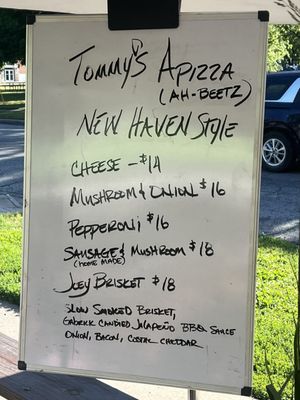 Tommy's Apizza
(AH-BEETZ)
New Haven Style
Cheese - $14
Mushroom & Onion $16
Pepperoni $16
Sausage & Mushroom $18
(Home Made)
Joey Brisket $18
Slow Smoked Brisket,
Candied Jalapeño BBQ Sauce
Onion, Bacon, Cheddar